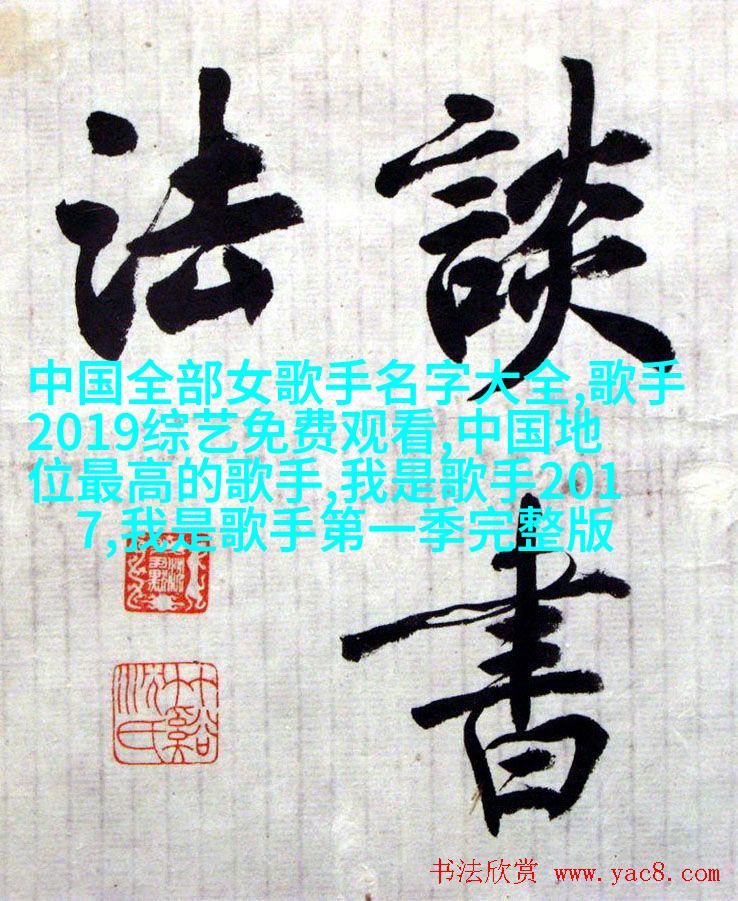 談書
法
中国全部女歌手名字大全,歌手
2019综艺免费观看,中国地
位最高的歌手,我是歌手201
7,我是歌手第一季完整版
竹谿沈氏
书法欣赏 www.yac8.com